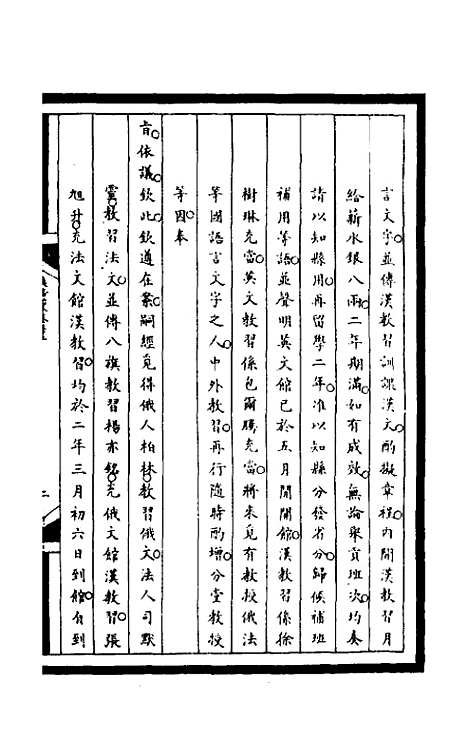 言文字並傳漢教習訓課漢文酌擬章程內開漢教習月
給薪水銀八兩二年期滿如有成效無論舉貢班次均奏
請以知縣用再留學二年准以知縣分發省分歸候補班
補用等語並聲明英文館已於五月開館漢教習係徐
樹琳充當英文教習係包爾騰充當將來覓有教授俄法
等國語言文字之人中外教習再行隨時酌增分堂教授
等因奉
旨依議欽此欽遵在案嗣經覓得俄人柏林教習俄文法人司默
靈教習法文並傳八旗教習楊亦銘充俄文館漢教習張
旭升充法文館漢教習均於二年三月初六日到館自到
二